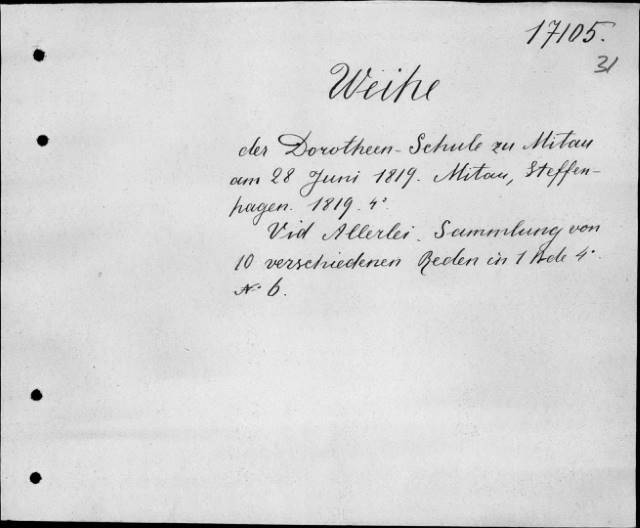 17105.
31
Weihe
der Dorotheen-Schule zu Mitau
am 28 Juni 1819. Mitau, Steffen-
hagen. 1819. 4°.
Vid Allerlei. Sammlung von
10 verschiedenen Reden in 1 Bde 4°.
№ 6.